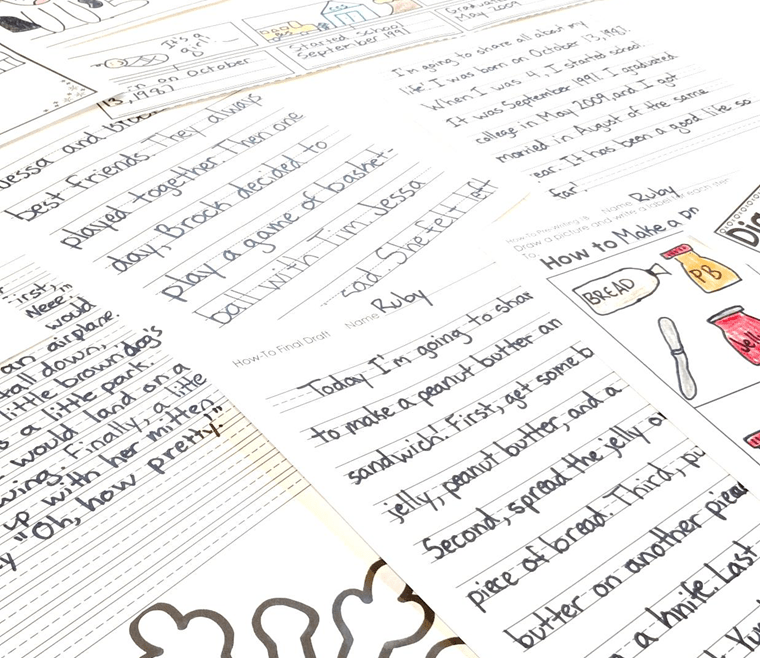 It's a
girl!
in on October
13, 1987
Started school
September 1991
Graduated
May 2009
I'm going to share all about my
life. I was born on October 13, 1987.
When I was 4, I started school.
It was September 1991. I graduated
college in May 2009, and I got
married in August of the same
ear. It has been a good life so
far.
Jessa and Brock
best friends. They always
played together. Then one
day, Brock decided to
play a game of basket-
ball with Tim. Jessa
said. She felt left
First,
Neee"
would
an airplane.
tall down,
little brown dog's
s a little part.
would land on a
wing. Finally, a little
up with her mitten
y "Oh, how pretty!"
How-To Final Draft Name Ruby
Today I'm going to shar
to make a peanut butter an
sandwich. First, get some b
jelly, peanut butter, and a
Second, spread the jelly o
piece of bread. Third, pu
butter on another piece
a knife. Last
Yum
How-To Pre-Writing Name Ruby
Draw a picture and write a label for each item.
To
How to Make a
BREAD
PB
Jelly